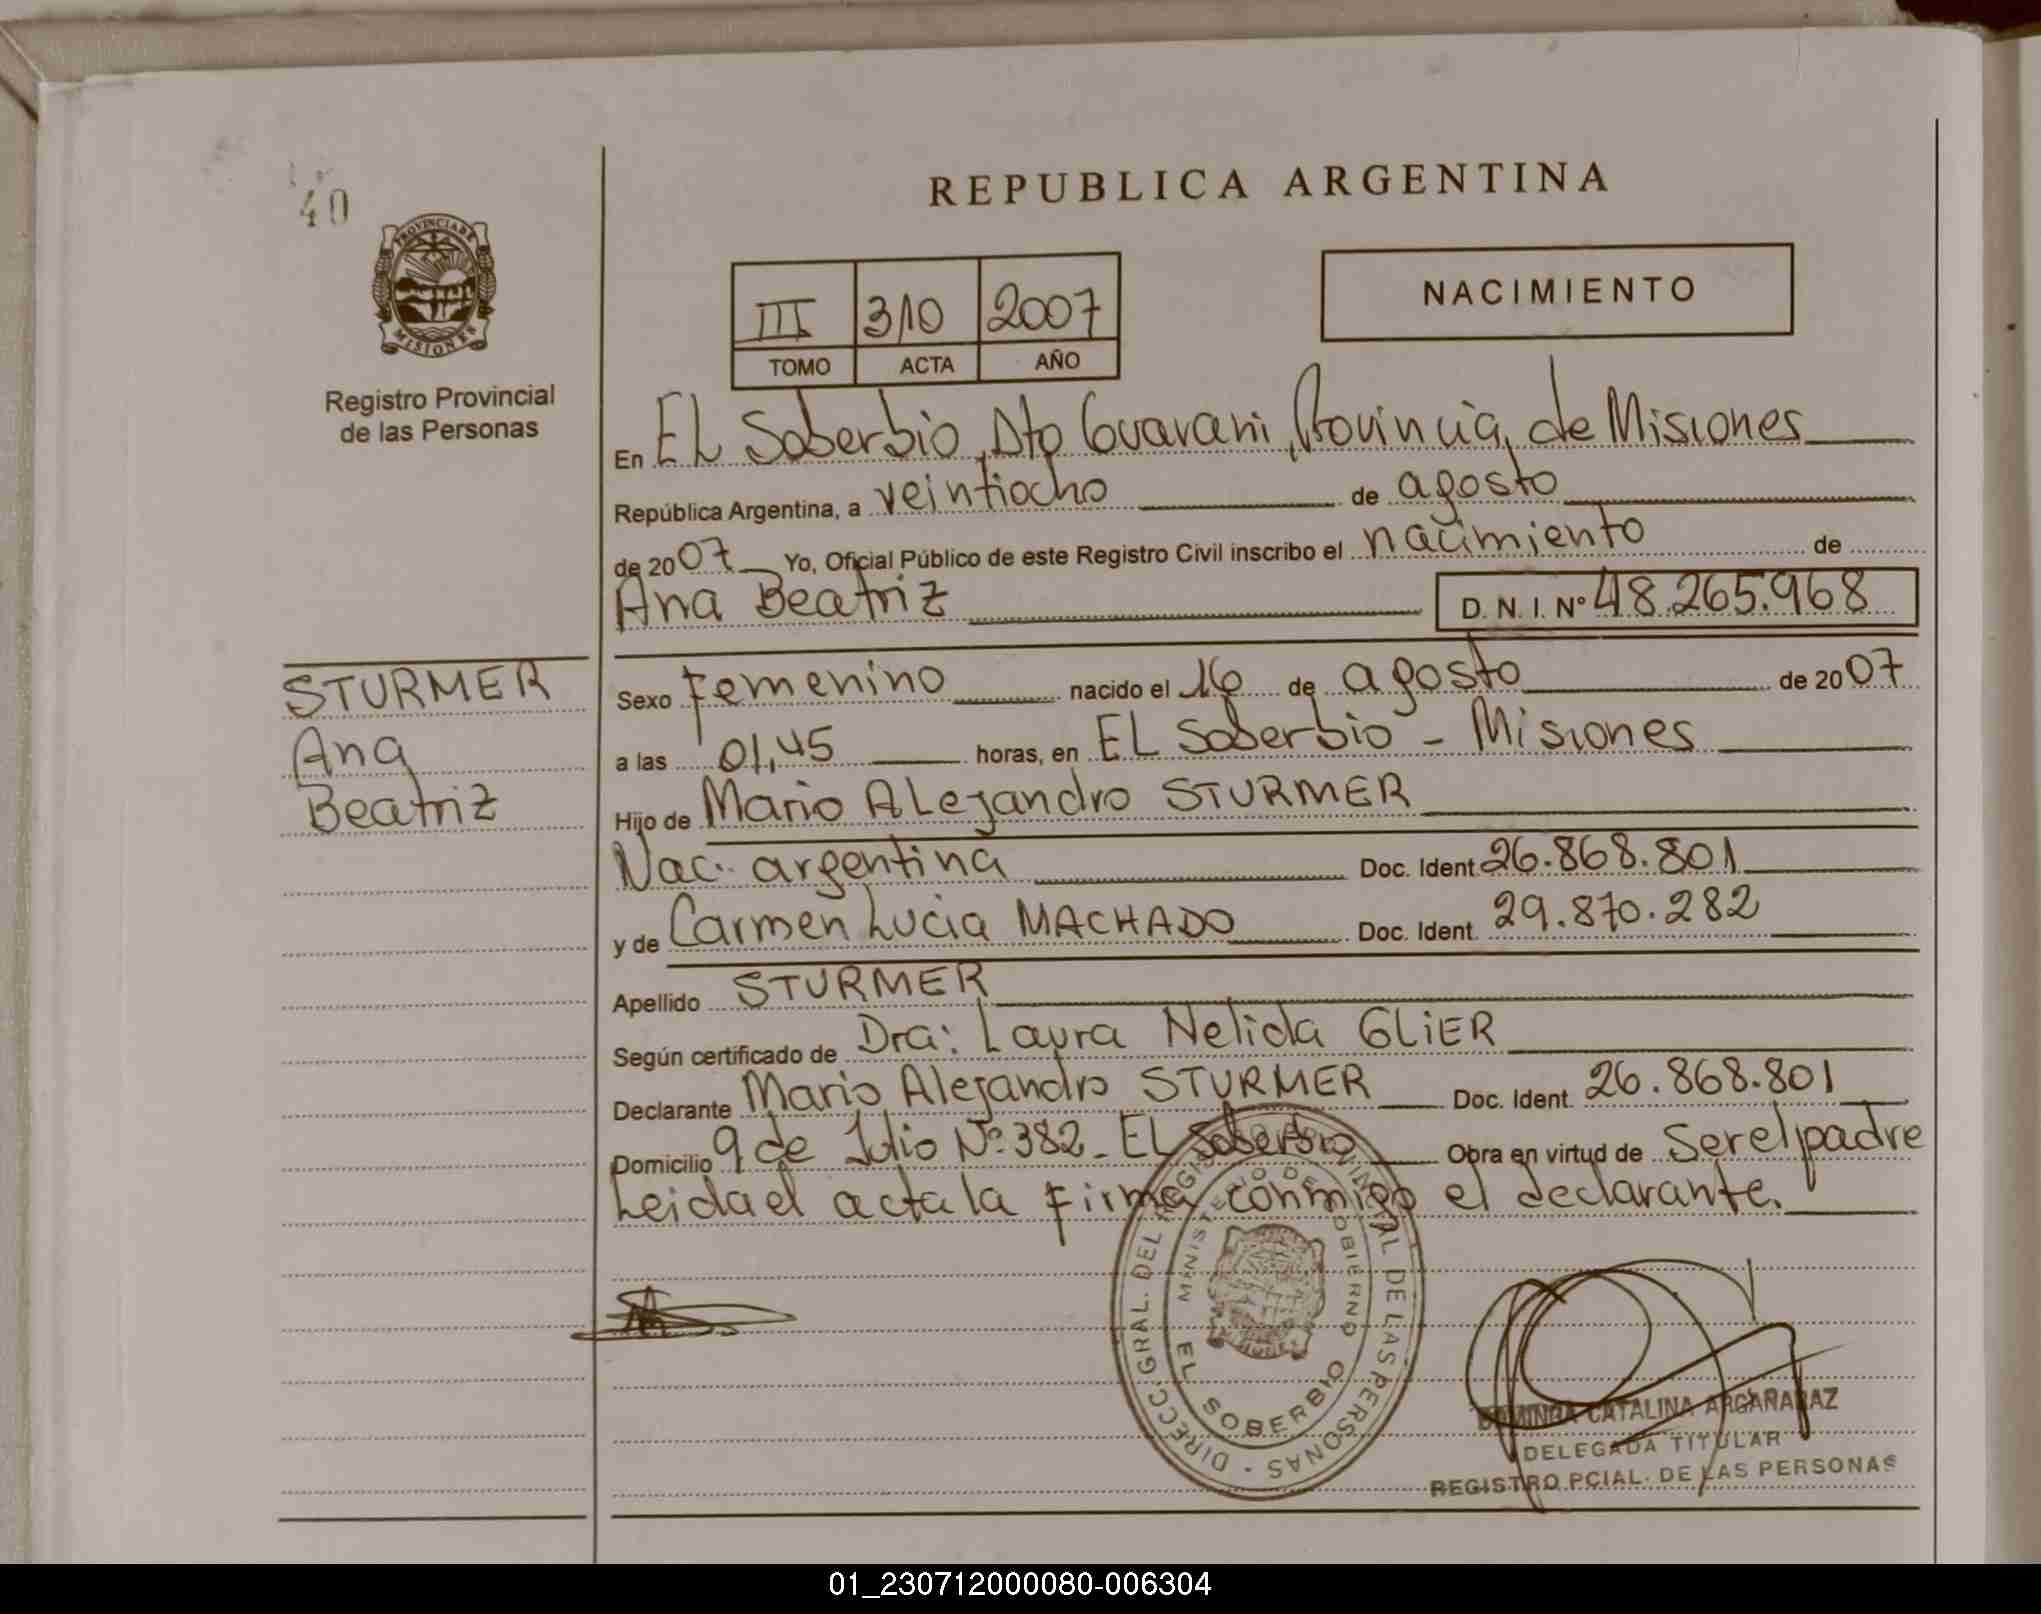 40
PROVINCIA DE
MISIONES
Registro Provincial
de las Personas
REPUBLICA ARGENTINA
III 310 2007
TOMO ACTA AÑO
NACIMIENTO
En EL Soberbio, Dto Guarani, Provincia, de Misiones
República Argentina, a veintiocho de agosto
de 2007 Yo, Oficial Público de este Registro Civil inscribo el nacimiento de
Ana Beatriz D. N. I. Nº 48.265.968
STURMER
Ana
Beatriz
Sexo Femenino nacido el 16 de agosto de 2007
a las 01,45 horas, en EL Soberbio - Misiones
Hijo de Mario ALejandro STURMER
Nac. argentina Doc. Ident. 26.868.801
y de Carmen Lucia MACHADO Doc. Ident. 29.870.282
Apellido STURMER
Según certificado de Dra: Laura Nelida GLiER
Declarante Mario Alejandro STURMER Doc. Ident. 26.868.801
Domicilio 9 de Julio Nº 382 - EL Soberbio Obra en virtud de Ser el padre
Leida el acta la firma conmigo el declarante.
DIRECC. GRAL. DEL REGISTRO PROVINCIAL DE LAS PERSONAS -
MINISTERIO DE GOBIERNO
EL SOBERBIO
MISIONES
CATALINA ARGAÑARAZ
DELEGADA TITULAR
REGISTRO PCIAL. DE LAS PERSONAS
01_230712000080-006304